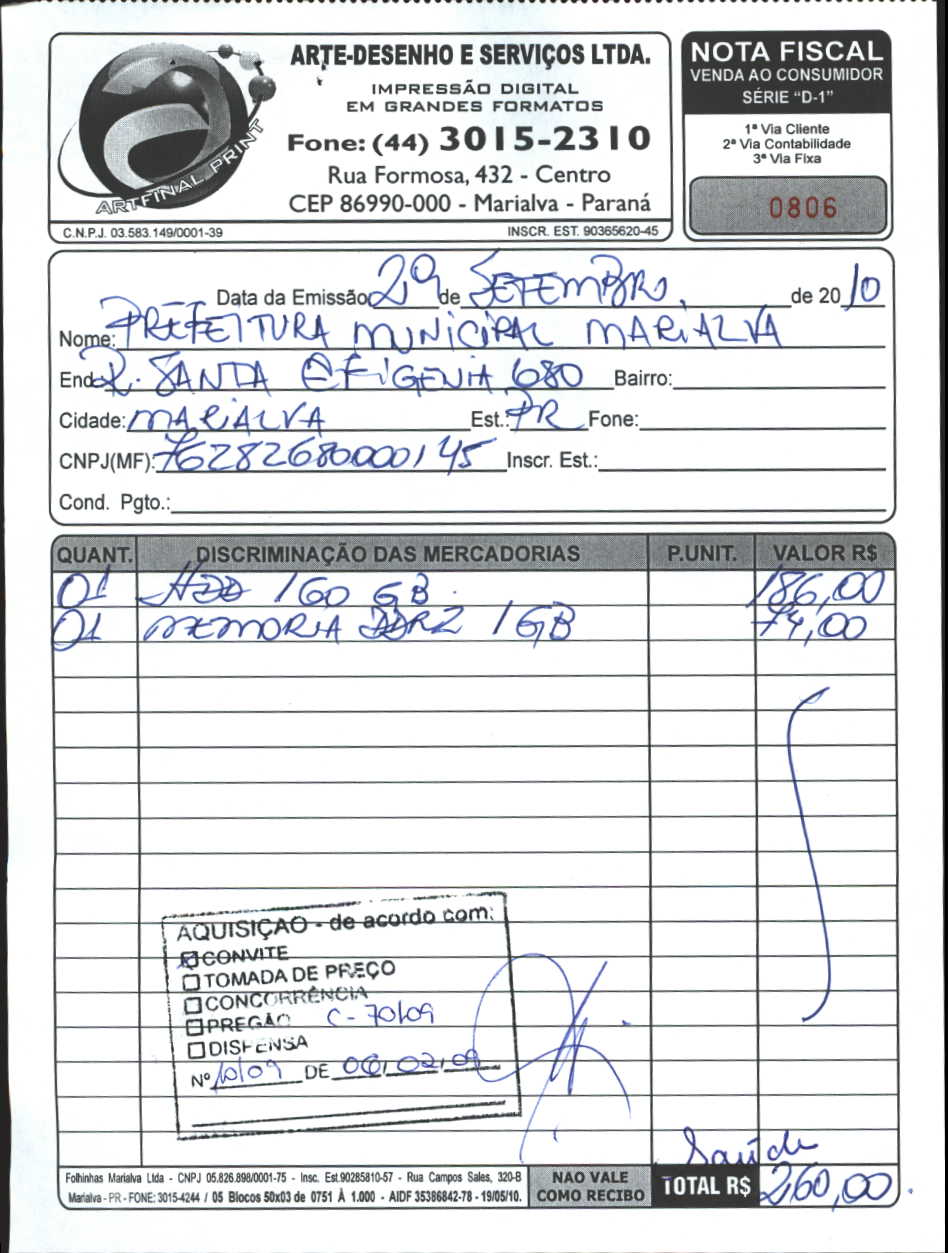 ARTE-DESENHO E SERVIÇOS LTDA.
IMPRESSÃO DIGITAL
EM GRANDES FORMATOS
Fone: (44) 3015-2310
Rua Formosa, 432 - Centro
CEP 86990-000 - Marialva - Paraná
ARTFINAL PRINT
C.N.P.J. 03.583.149/0001-39
INSCR. EST. 90365620-45
NOTA FISCAL
VENDA AO CONSUMIDOR
SÉRIE “D-1”
1ª Via Cliente
2ª Via Contabilidade
3ª Via Fixa
0806
Data da Emissão 29 de SETEMBRO, de 2010
Nome: PREFEITURA MUNICIPAL MARIALVA
End. R. SANTA EFIGENIA 680 Bairro:
Cidade: MARIALVA Est.: PR Fone:
CNPJ(MF): 76282680000145 Inscr. Est.:
Cond. Pgto.:
QUANT. DISCRIMINAÇÃO DAS MERCADORIAS P.UNIT. VALOR R$
01 HDD 160 GB. 186,00
01 MEMORIA DDR2 1GB 74,00
AQUISIÇÃO - de acordo com:
CONVITE
TOMADA DE PREÇO
CONCORRÊNCIA
PREGÃO C-70/09
DISPENSA
Nº 10/09 DE 06/02/09
Saúde
Folhinhas Marialva Ltda - CNPJ 05.826.898/0001-75 - Insc. Est.90285810-57 - Rua Campos Sales, 320-B
Marialva - PR - FONE: 3015-4244 / 05 Blocos 50x03 de 0751 À 1.000 - AIDF 35386842-78 - 19/05/10.
NAO VALE
COMO RECIBO
TOTAL R$ 260,00.